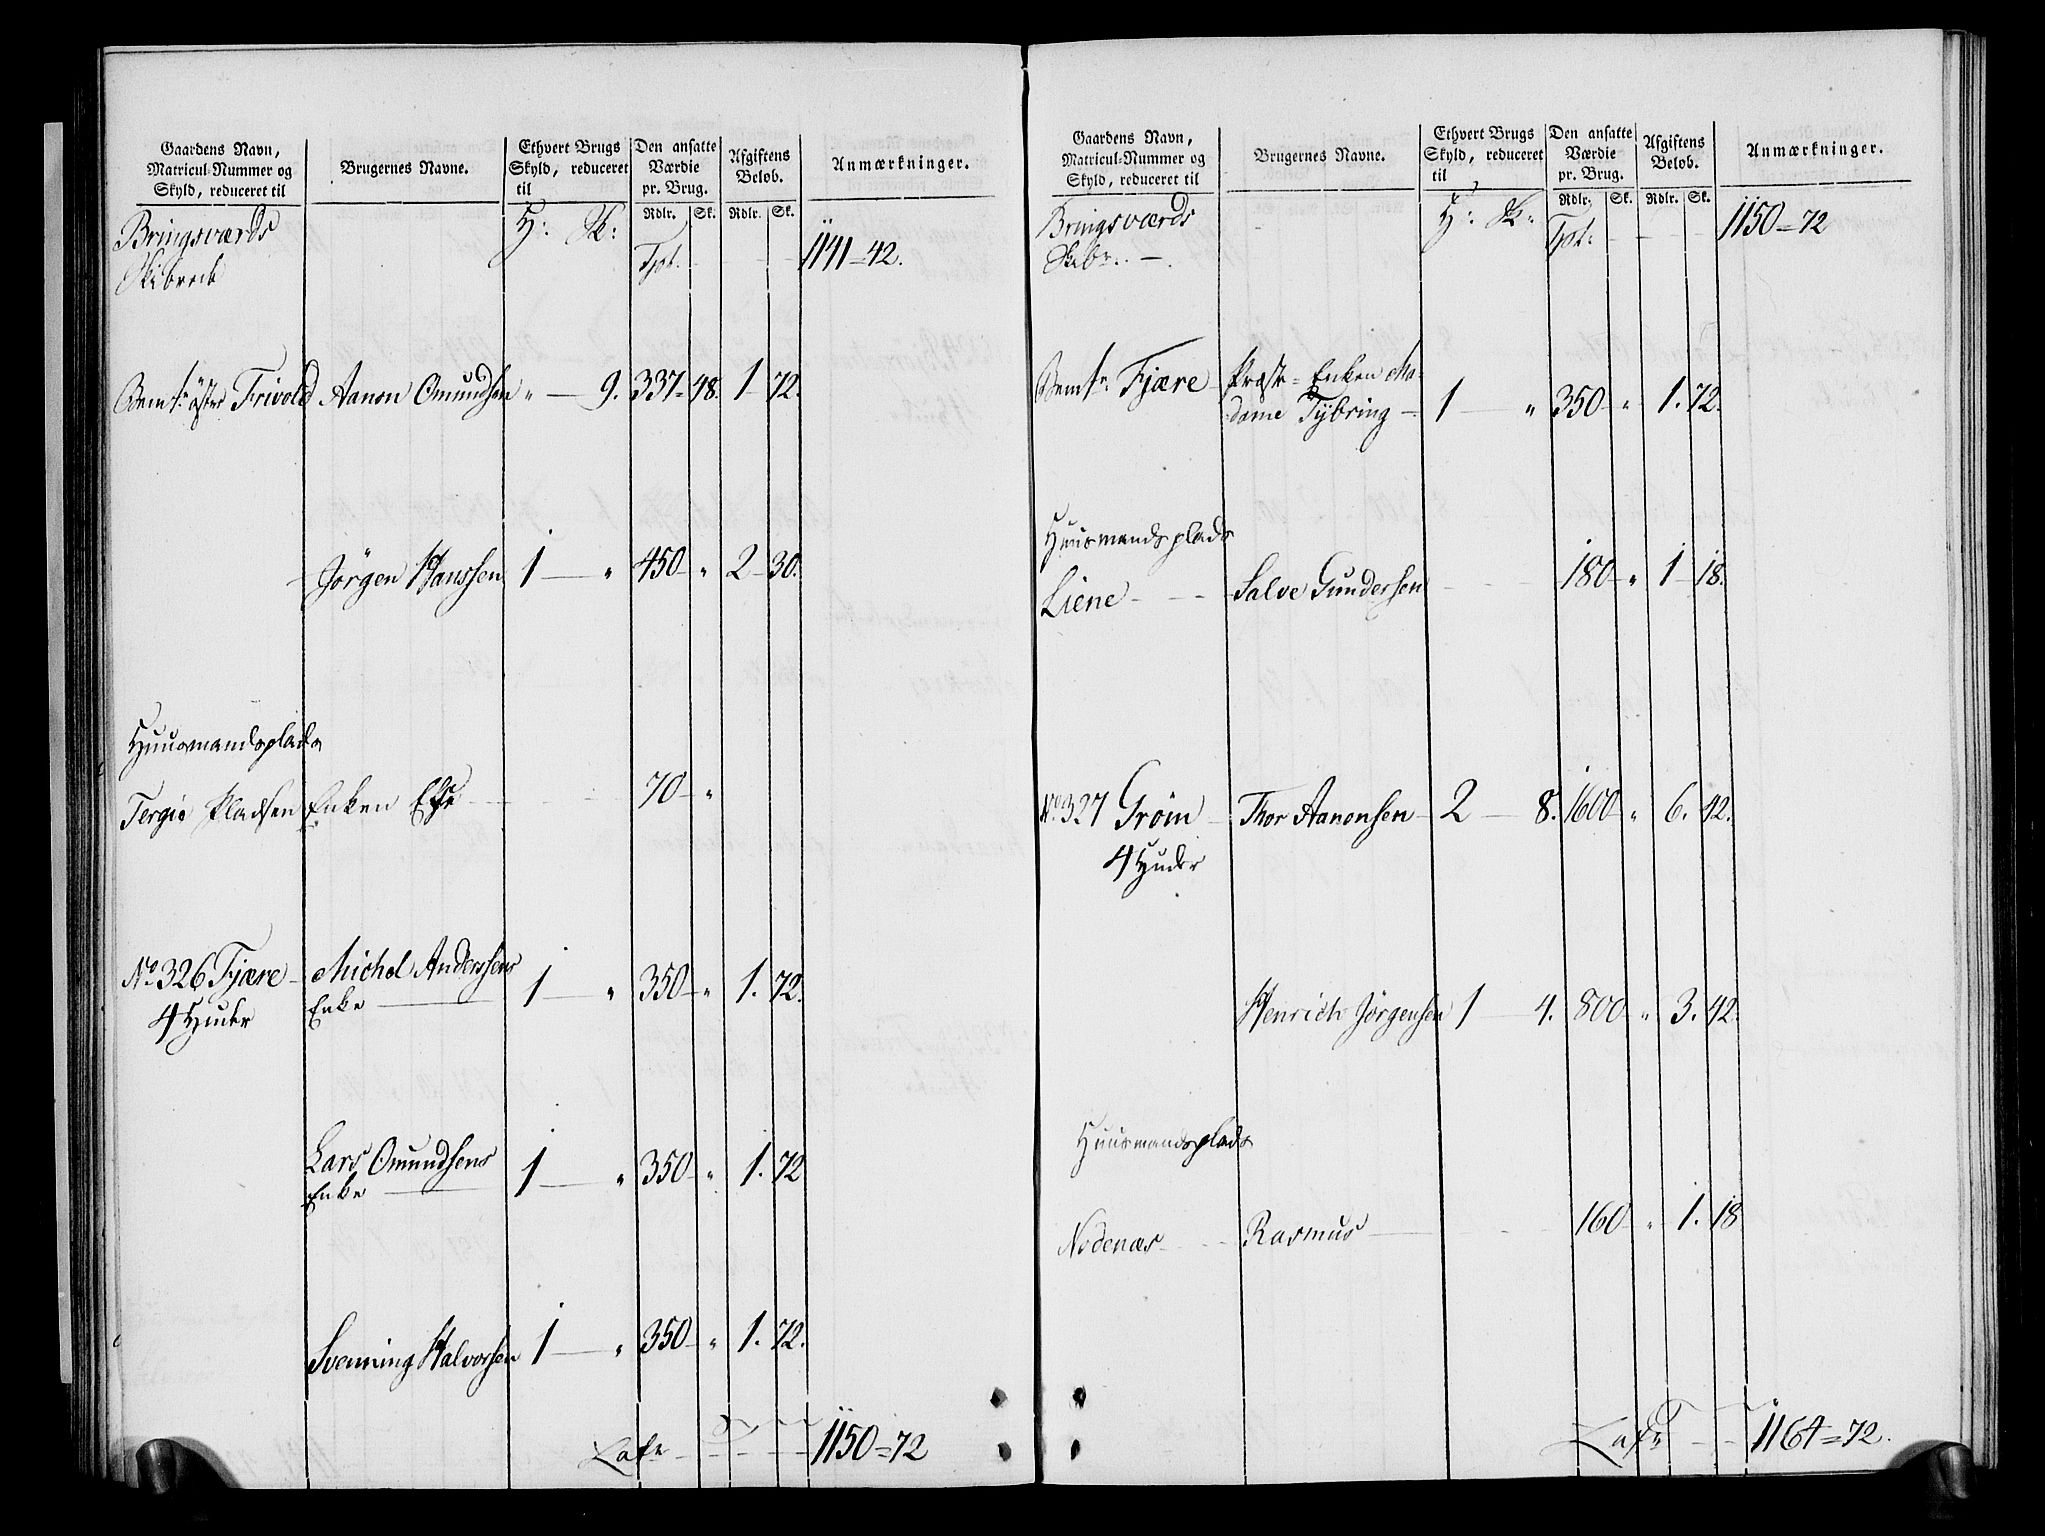 Gaardens Navn, Matricul-Nummer og Skyld, reduceret til
Brugernes Navne.
Ethvert Brugs Skyld, reduceret til
Den ansatte Værdie pr. Brug.
Afgiftens Beløb.
Anmærkninger.
Rdlr. Sk. Rdlr. Sk.
Bringsværds H: Sk:
Skibrede Tpt. 1141=42.
Bemte öster Frivold Aanon Omundsen " 9. 337 48. 1 72.
Jørgen Hanssen 1 " 450 " 2 30.
Huusmandsplads
Tergie Pladsen Enken 70 "
No 326 Fjære Michel Anderssens 1 " 350 " 1. 72.
4 Huder Enke
Lars Omundsens 1 " 350 " 1. 72
Enke
Svenning Halvorsen 1 " 350 " 1. 72.
Late 1150=72
Gaardens Navn, Matricul-Nummer og Skyld, reduceret til
Brugernes Navne.
Ethvert Brugs Skyld, reduceret til
Den ansatte Værdie pr. Brug.
Afgiftens Beløb.
Anmærkninger.
Rdlr. Sk. Rdlr. Sk.
Bringsværds H: Sk: 1150=72
Skibr. Tpt:
Bemte Fjære Præste=Enken Ma-
dame Tybring 1 " 350 " 1. 72.
Huusmandsplads
Liene Salve Gundersen 180 " 1 18.
No 327 Grøm Thor Aanonsen 2 8. 1600 " 6. 42.
4 Huder
Henrich Jörgensen 1 4. 800 " 3. 42.
Huusmandsplads
Nodenæs Rasmus 160 " 1. 18
Late 1164=72.